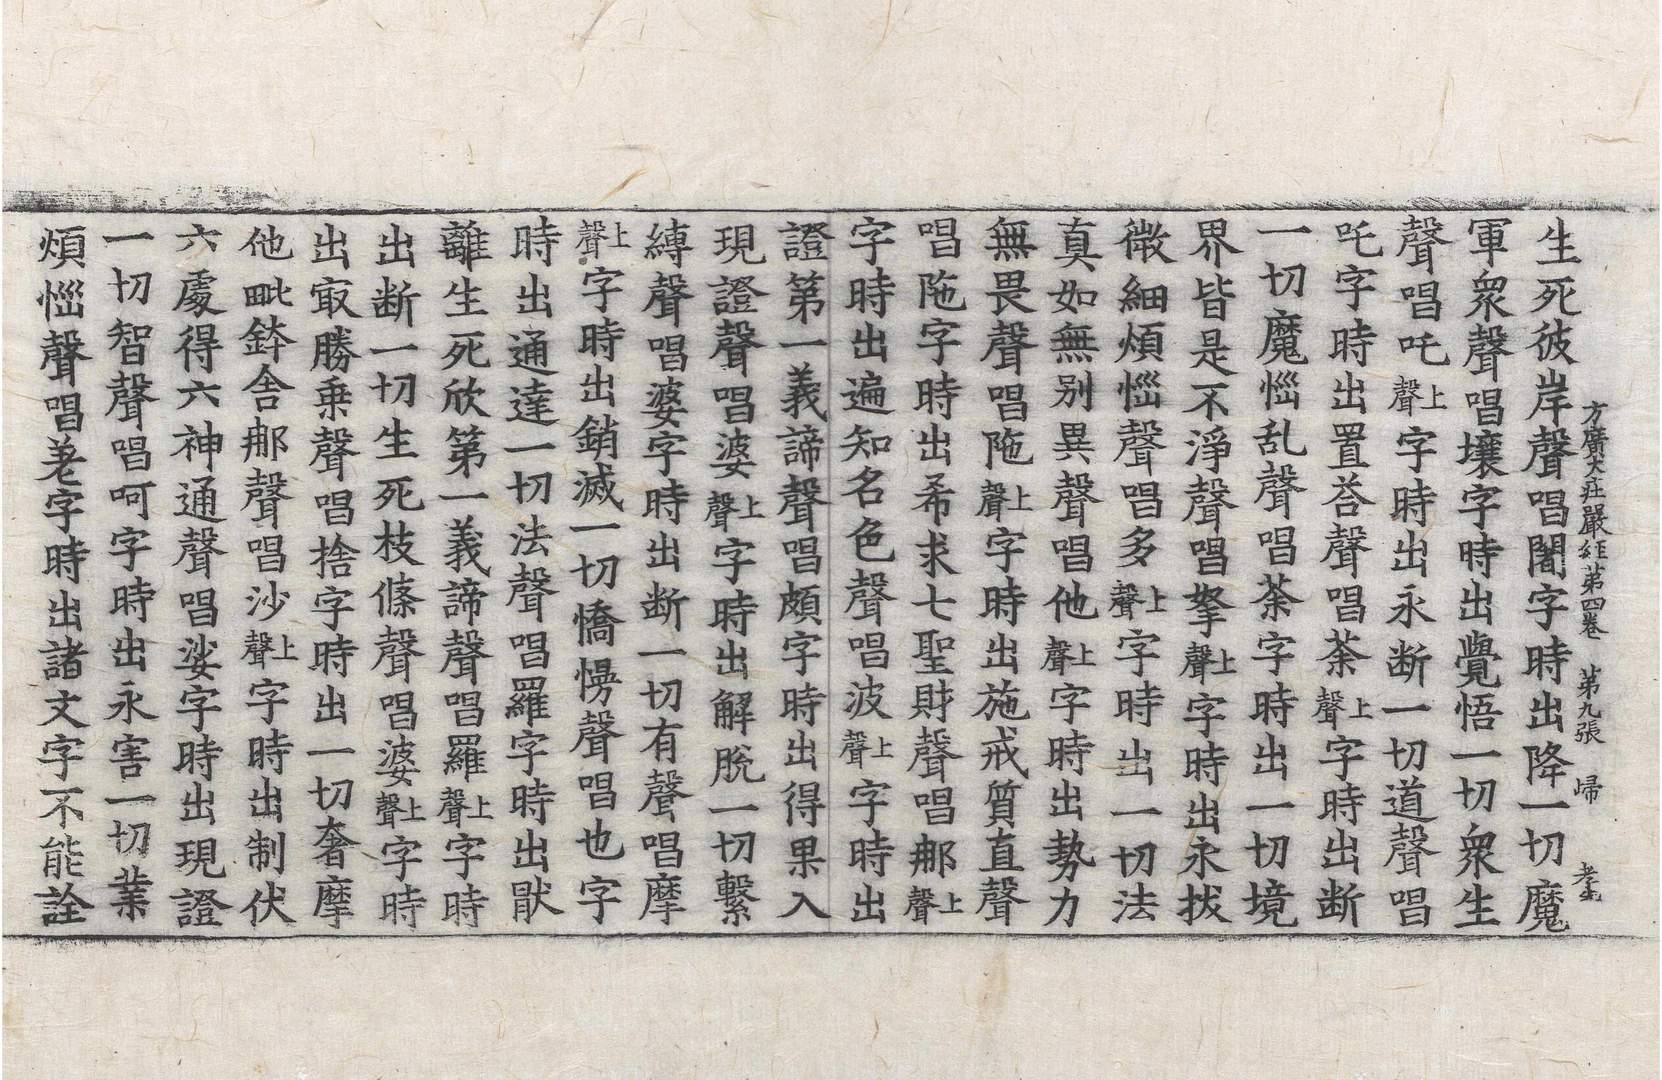 方廣大莊嚴經第四卷 第九張 歸
生死彼岸聲唱闍字時出降一切魔
軍衆聲唱壤字時出覺悟一切衆生
聲唱吒上聲字時出永断一切道聲唱
吒字時出置荅聲唱荼上聲字時出断
一切魔惱乱聲唱荼字時出一切境
界皆是不淨聲唱拏上聲字時出永拔
微細煩惱聲唱多上聲字時出一切法
真如無别異聲唱他上聲字時出勢力
無畏聲唱陁上聲字時出施戒質直聲
唱陁字時出希求七聖財聲唱那上聲
字時出遍知名色聲唱波上聲字時出
證第一義諦聲唱頗字時出得果入
現證聲唱婆上聲字時出解脫一切繫
縛聲唱婆字時出断一切有聲唱摩
上聲字時出銷滅一切憍慢聲唱也字
時出通達一切法聲唱羅字時出猒
離生死欣第一義諦聲唱羅上聲字時
出断一切生死枝條聲唱婆上聲字時
出㝡勝乗聲唱捨字時出一切奢摩
他毗鉢舍那聲唱沙上聲字時出制伏
六處得六神通聲唱娑字時出現證
一切智聲唱呵字時出永害一切業
煩惱聲唱差字時出諸文字不能詮